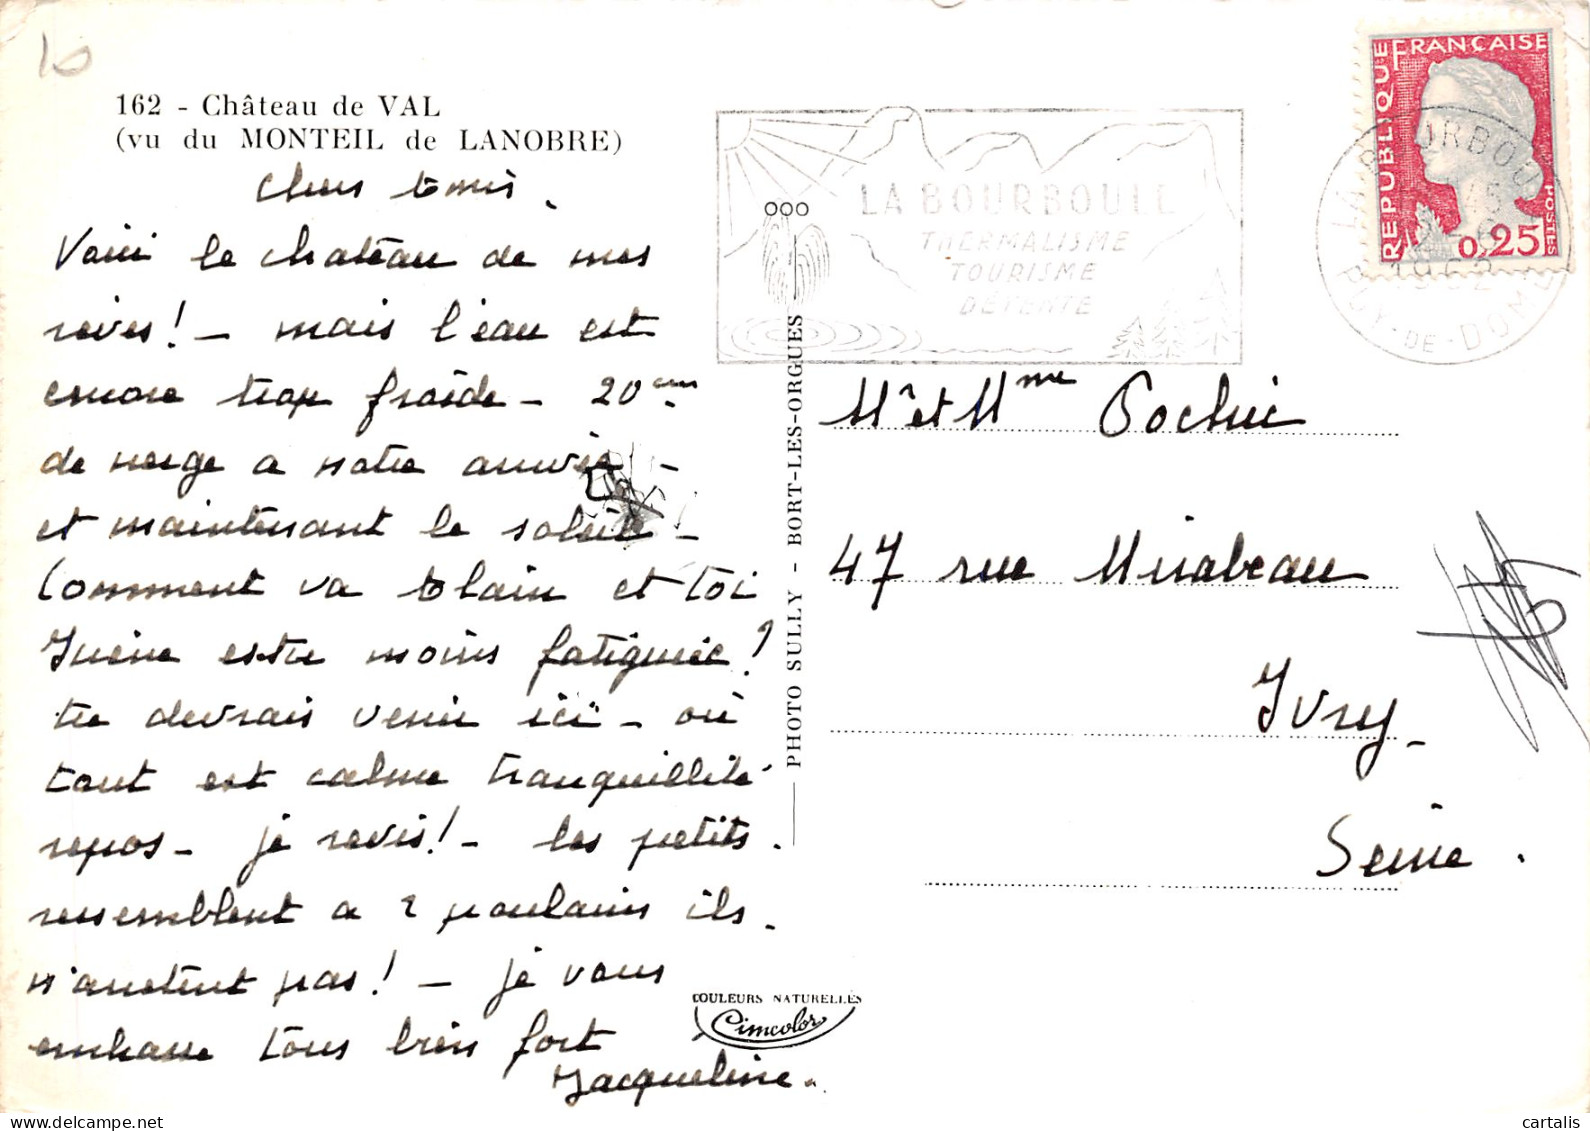 162 - Château de VAL
(vu du MONTEIL de LANOBRE)
Chers tous.
Voici le chateau de mes
reves! - mais l'eau est
encore trop froide - 20 cm
de neige a notre arrivée -
et maintenant le soleil -
Comment va Alain et toi
estu moins fatiguée?
tu devrais venir ici - où
tout est calme tranquillité
repos - je revis! - les petits.
ressemblent a 2 poulains ils.
n'arretent pas! - je vous
embrasse tous bien fort
Jacqueline.
PHOTO SULLY - BORT-LES-ORGUES
COULEURS NATURELLES
Cimcolor
LA BOURBOULE
THERMALISME
TOURISME
DÉTENTE
RÉPUBLIQUE FRANÇAISE
0,25
POSTES
LA BOURBOULE
1962
PUY-DE-DOME
Mr et Mme
47 rue Mirabeau
Ivry -
Seine.
cartalis